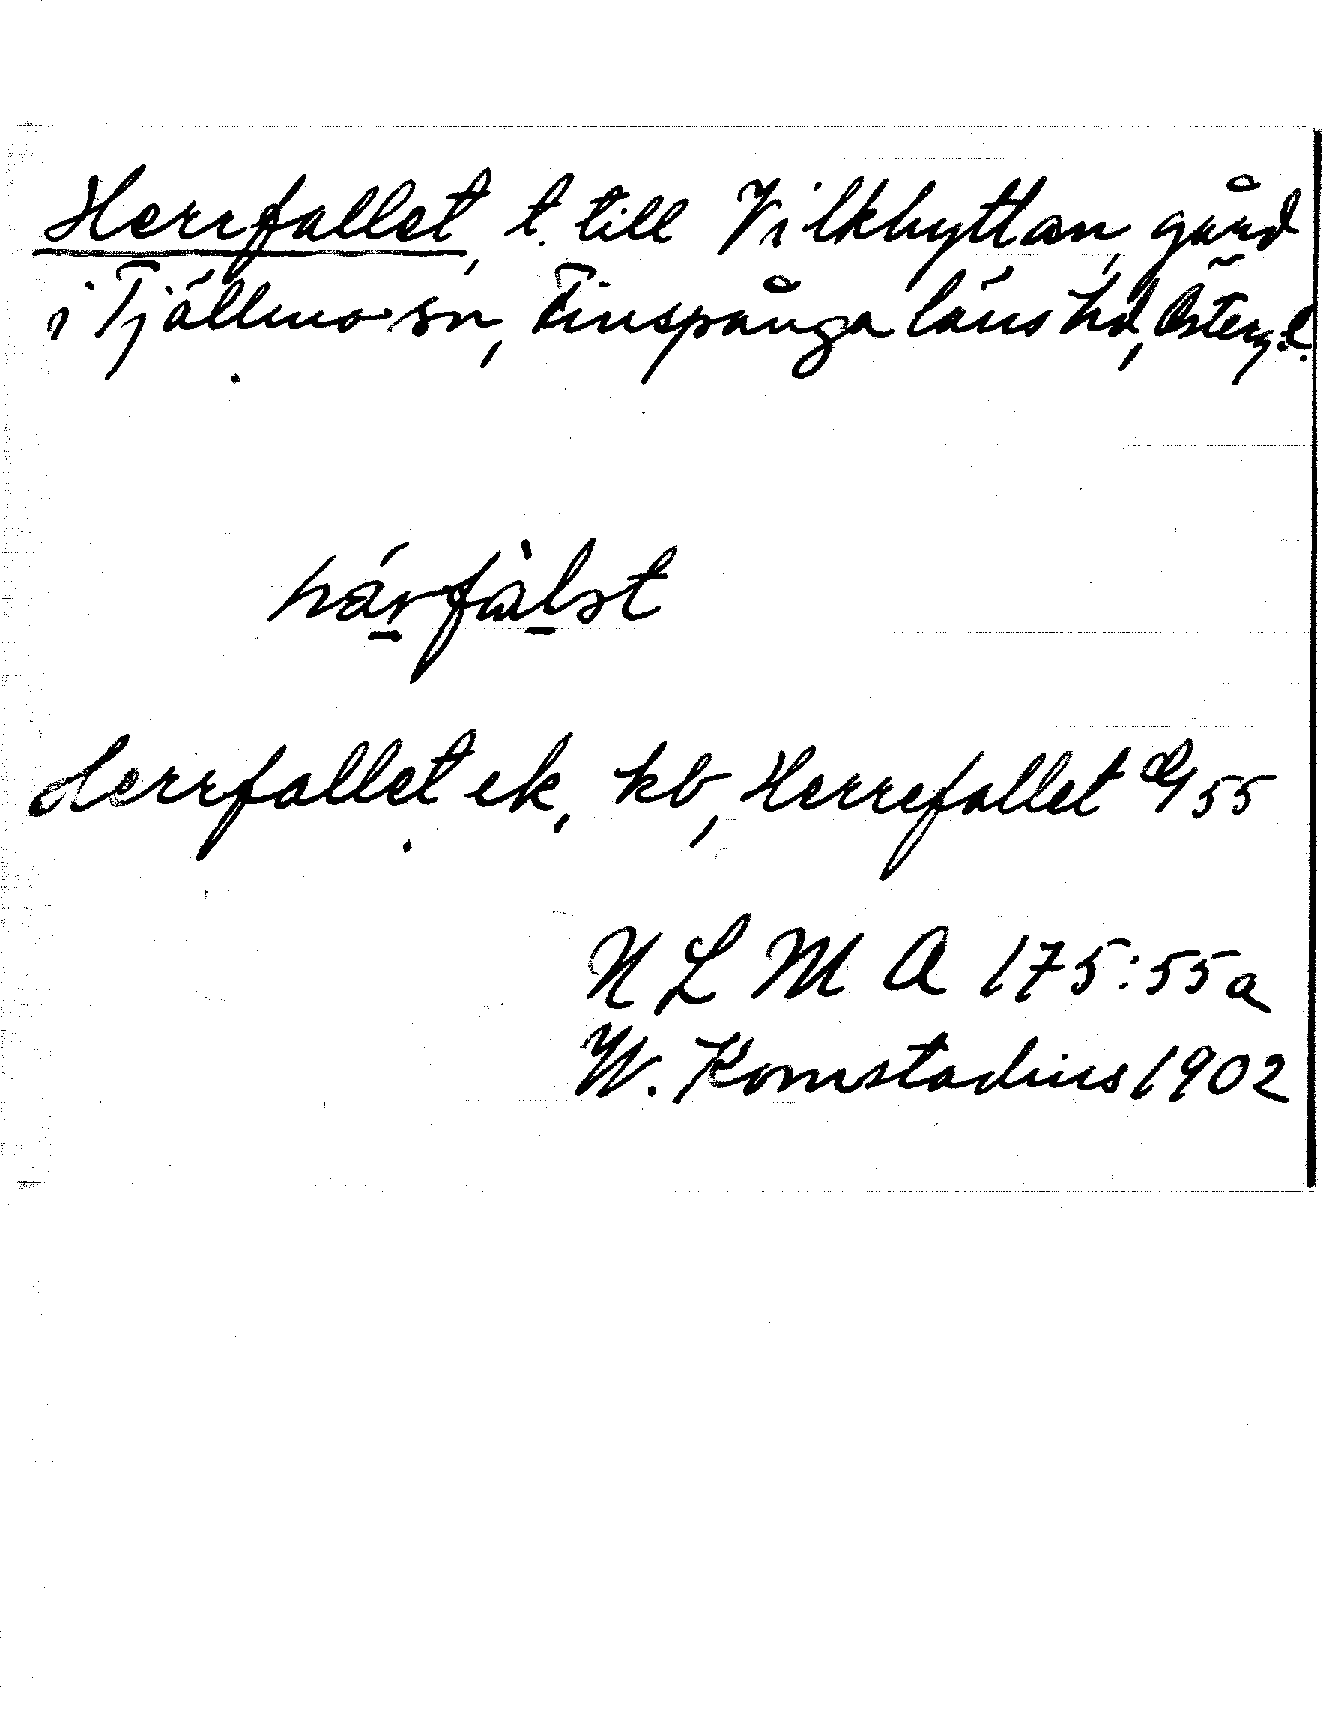 Herrfallet, t. till Vilkhyttan, gård
i Tjällmo sn, Finspånga läns hd, Österg. l.
härfàlət
Herrfallet ek, kb, Herrefallet 55
N L M A 175:55a
W. Komstadius 1902